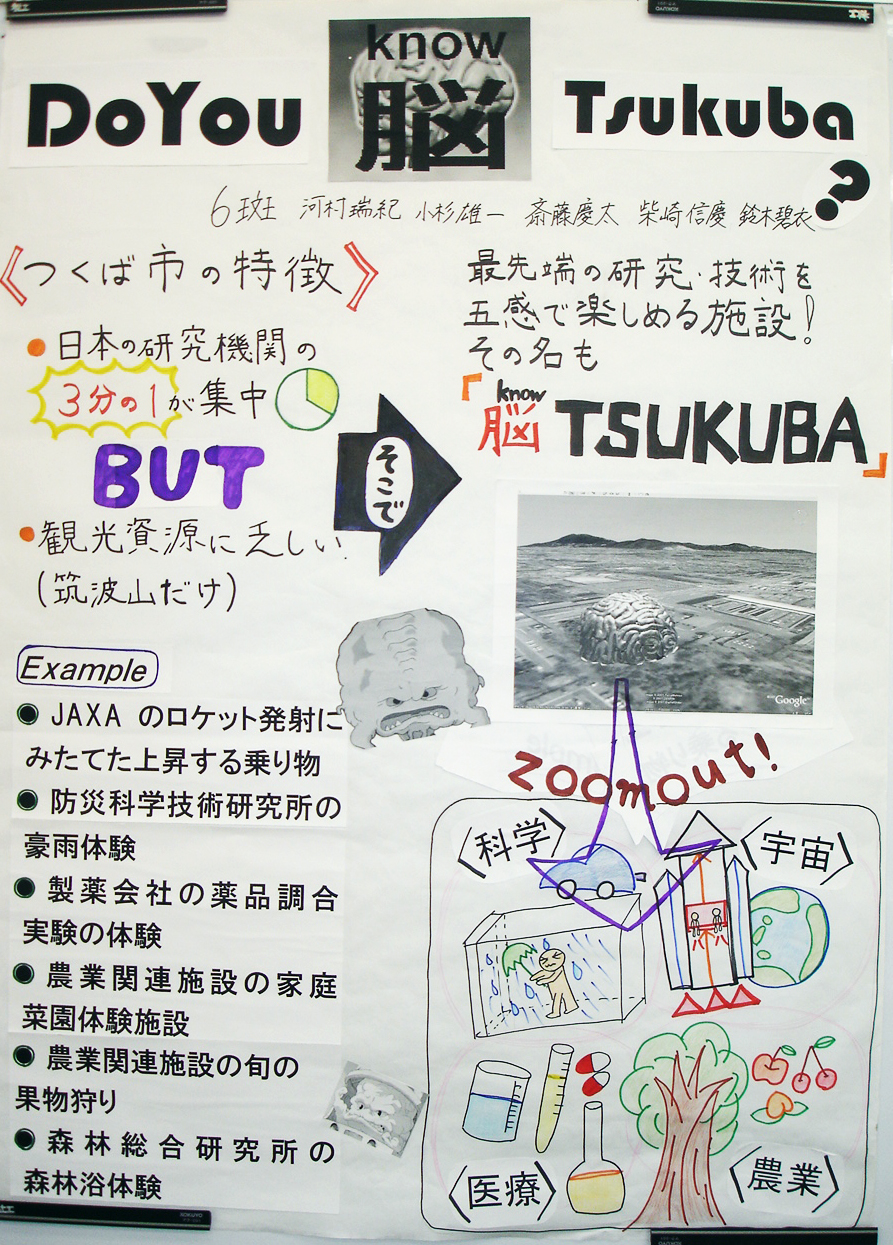 know
DoYou 脳 Tsukuba
?
6班 河村瑞紀 小杉雄一 斎藤慶太 柴崎信慶 鈴木碧衣
《つくば市の特徴》
● 日本の研究機関の
3分の1が集中
BUT
● 観光資源に乏しい
(筑波山だけ)
そこで
最先端の研究・技術を
五感で楽しめる施設!
その名も
know
「脳TSUKUBA」
Google
zoomout!
Example
● JAXA のロケット発射に
みたてた上昇する乗り物
● 防災科学技術研究所の
豪雨体験
● 製薬会社の薬品調合
実験の体験
● 農業関連施設の家庭
菜園体験施設
● 農業関連施設の旬の
果物狩り
● 森林総合研究所の
森林浴体験
〈科学〉
〈宇宙〉
〈医療〉
〈農業〉